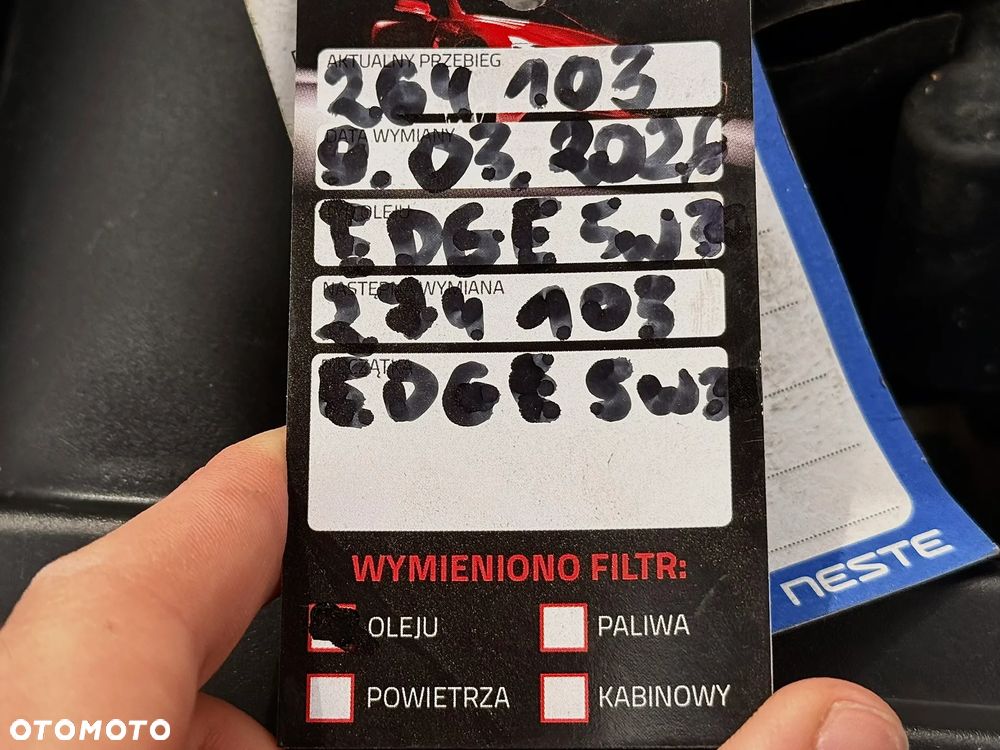 AKTUALNY PRZEBIEG
264 103
DATA WYMIANY
9.03.2026
OLEJU
EDGE 5W30
NASTĘPNA WYMIANA
274 103
PIECZĄTKA
EDGE 5W3
WYMIENIONO FILTR:
OLEJU PALIWA
POWIETRZA KABINOWY
NESTE
OTOMOTO